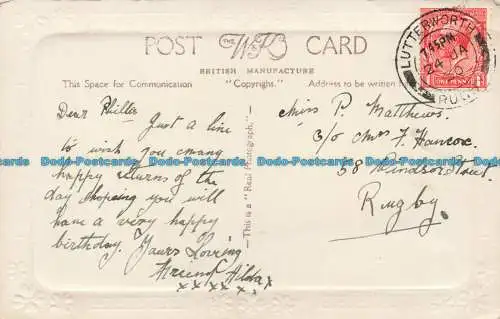 POST CARD
BRITISH MANUFACTURE
This Space for Communication "Copyright." Address to be written
This is a "Real Photograph."
LUTTERWORTH
7.15PM
24 JA
ONE PENNY
Dear Phillis Just a line
to wish you many
happy returns of the
day hopeing you will
have a very happy
birthday. Yours Loving
Friend Hilda
x x x x x x
Miss P. Matthews.
c/o Mrs F. Hancox.
58 Windsor Street.
Rugby.
Dodo-Postcards Dodo-Postcards Dodo-Postcards Dodo-Postcards Dodo-Postcards